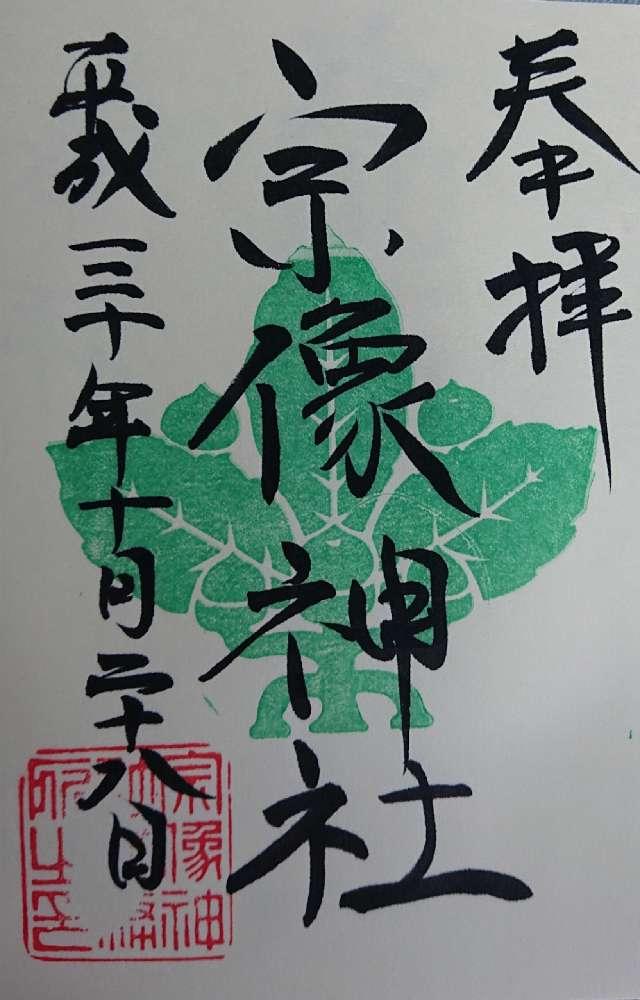 奉拝
宗像神社
平成三十年十月二十八日
宗像神